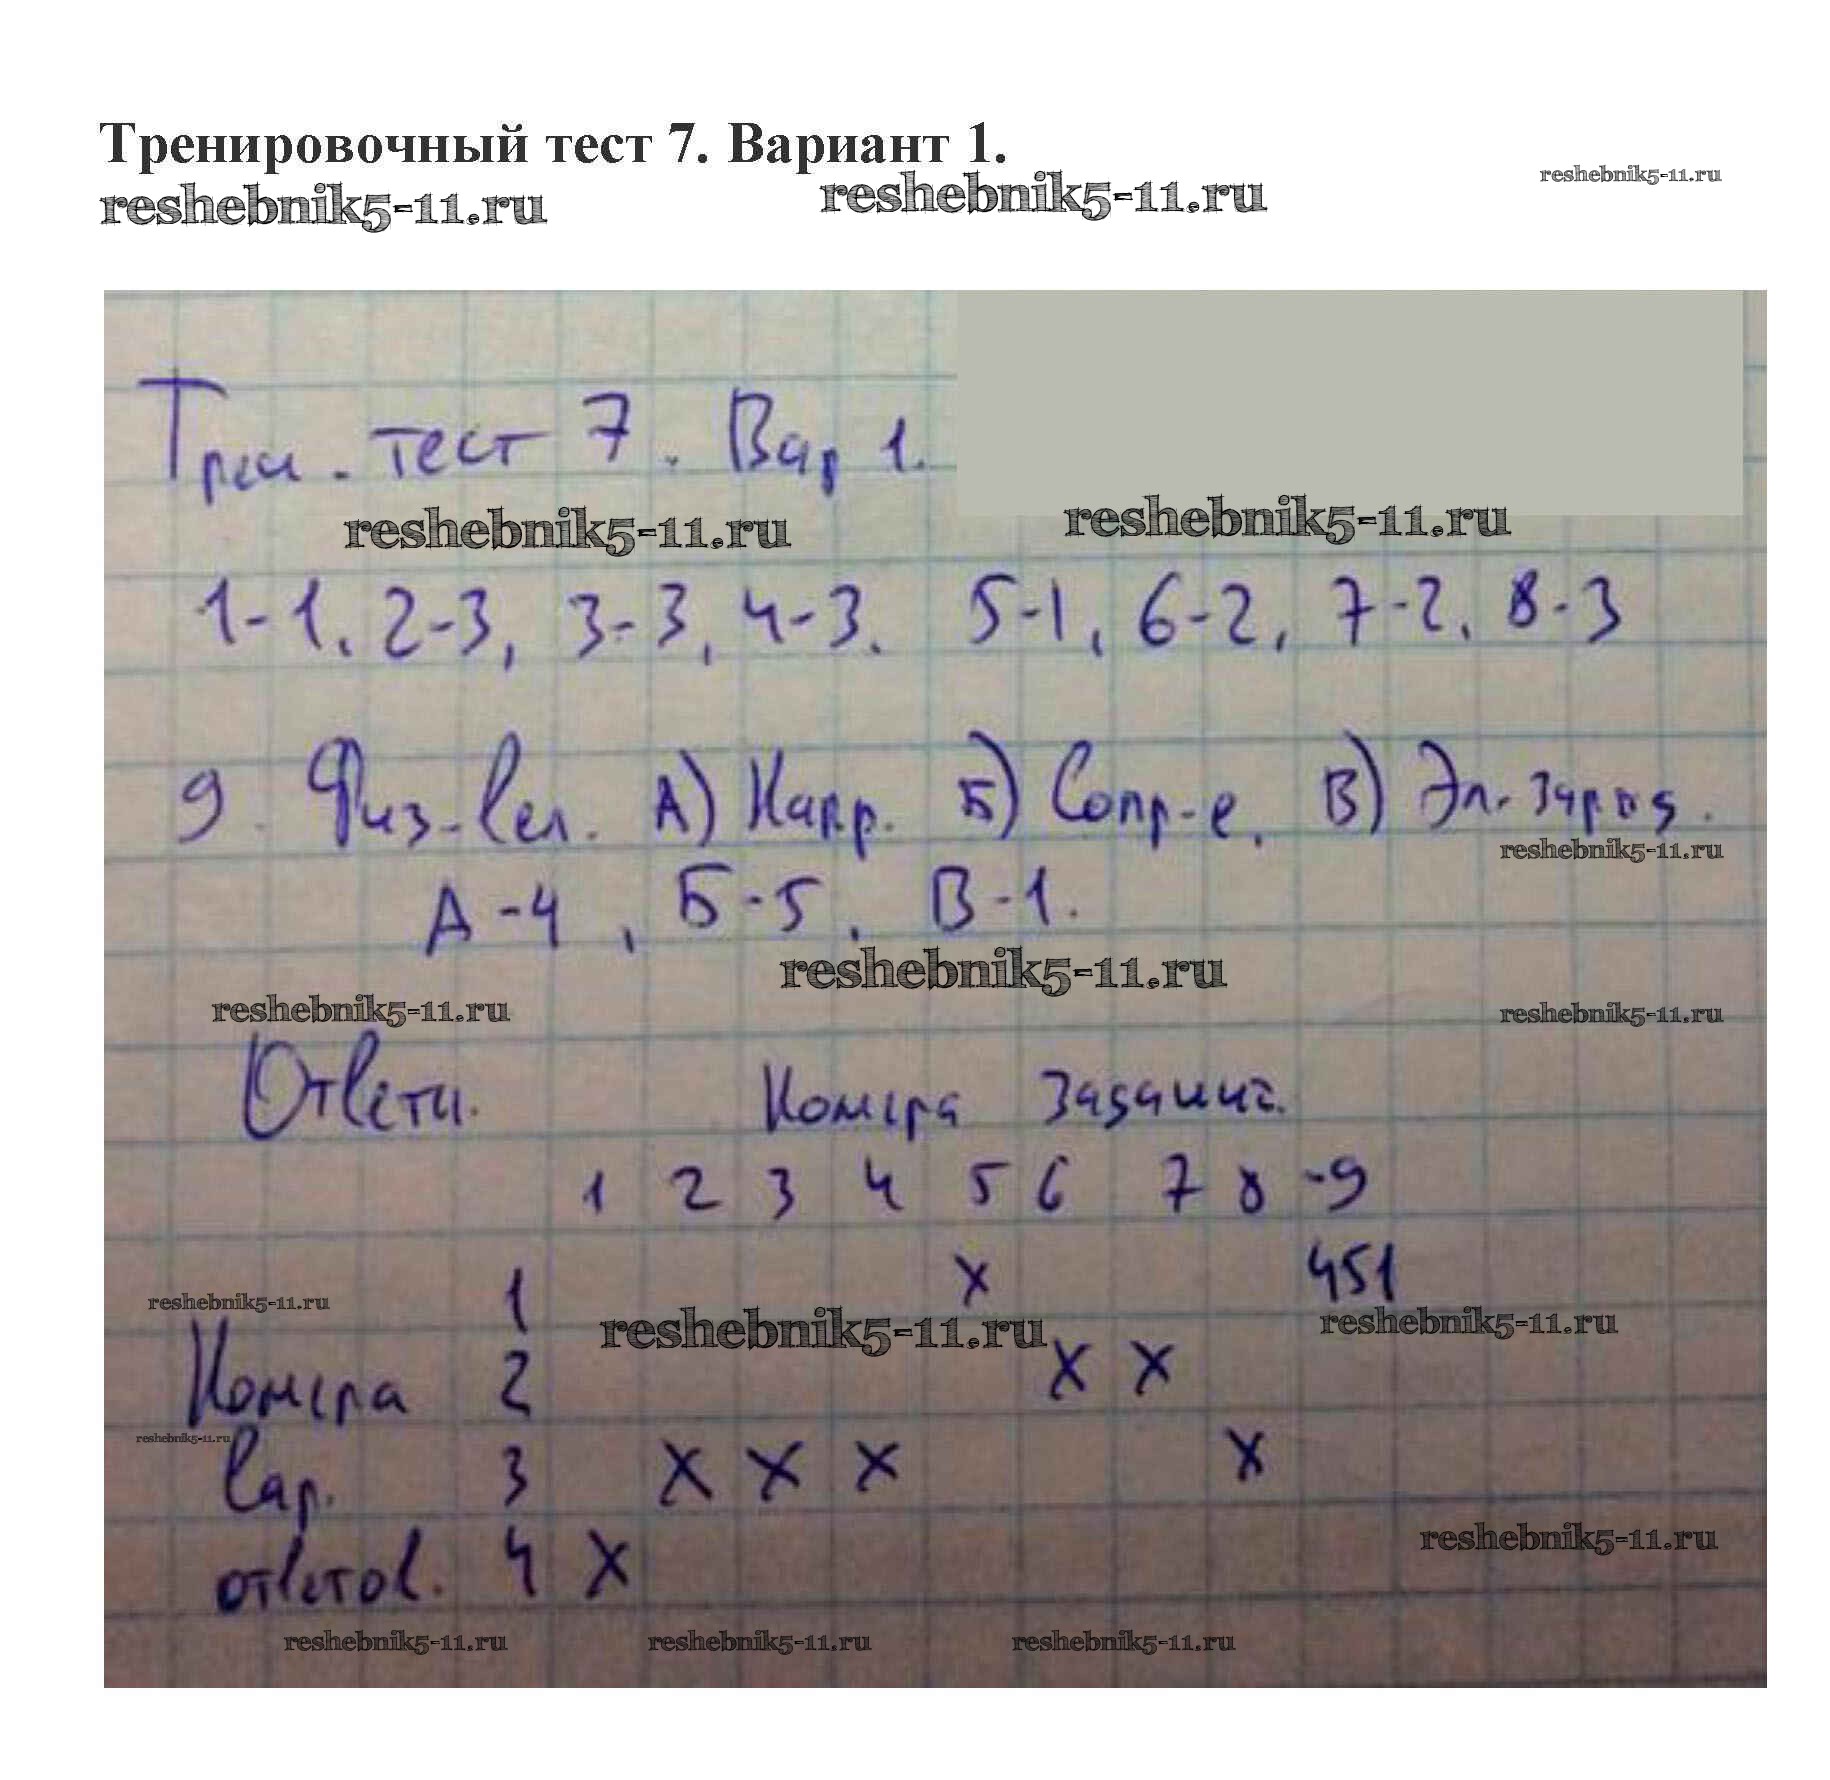 Тренировочный тест 7. Вариант 1.
reshebnik5-11.ru reshebnik5-11.ru reshebnik5-11.ru
Трен. тест 7. Вар 1.
reshebnik5-11.ru reshebnik5-11.ru
1-1, 2-3, 3-3, 4-3. 5-1, 6-2, 7-2, 8-3
9. Физ-вел. А) Напр. Б) Сопр-е. В) Эл. заряд.
reshebnik5-11.ru
А-4, Б-5, В-1.
reshebnik5-11.ru
reshebnik5-11.ru reshebnik5-11.ru
Ответы. Номера заданий.
1 2 3 4 5 6 7 8 -9
1 х 451
reshebnik5-11.ru reshebnik5-11.ru reshebnik5-11.ru
Номера 2 х х
reshebnik5-11.ru
вар. 3 х х х х
reshebnik5-11.ru
ответов. 4 х
reshebnik5-11.ru reshebnik5-11.ru reshebnik5-11.ru